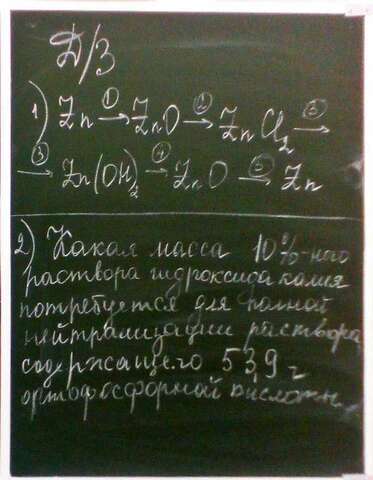 Д/З
1) Zn →① ZnO →② ZnCl₂ →③
→③ Zn(OH)₂ →④ ZnO →⑤ Zn
2) Какая масса 10%-ного
раствора гидроксида калия
потребуется для полной
нейтрализации раствора,
содержащего 539 г
ортофосфорной кислоты.